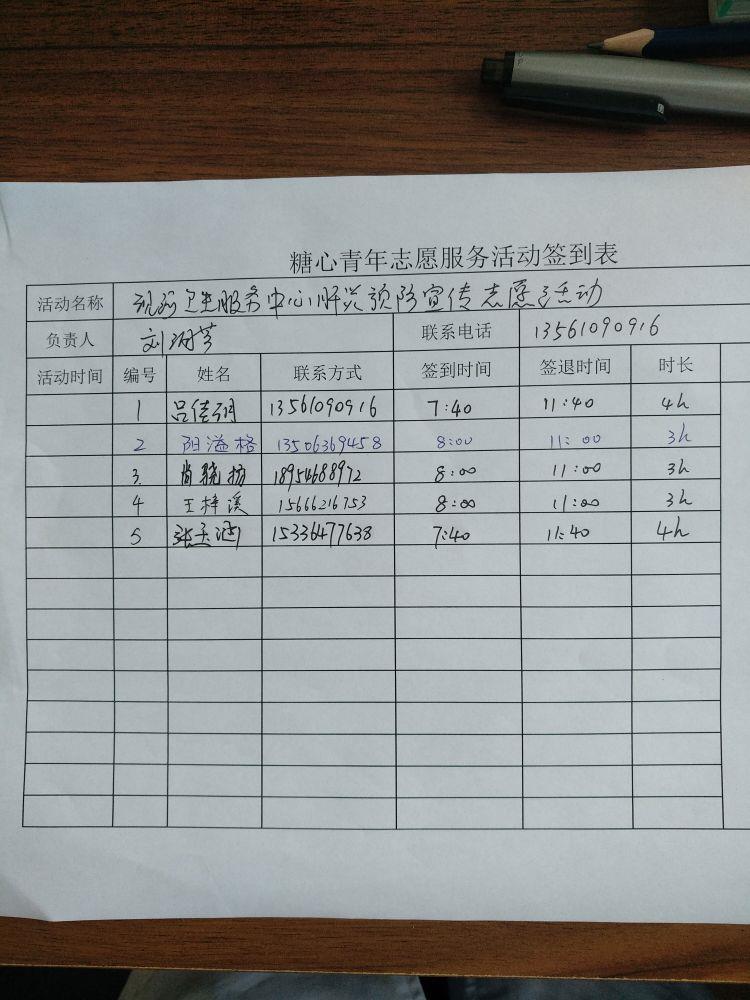 糖心青年志愿服务活动签到表
活动名称 卫生服务中心肝炎预防宣传志愿活动
负责人 刘 联系电话 13561090916
活动时间 编号 姓名 联系方式 签到时间 签退时间 时长
1 吕佳 13561090916 7:40 11:40 4h
2 阳溢格 13506369458 8:00 11:00 3h
3. 肖骁扬 18954688972 8:00 11:00 3h
4 王梓溪 15666216753 8:00 11:00 3h
5 张玉涵 15336477638 7:40 11:40 4h